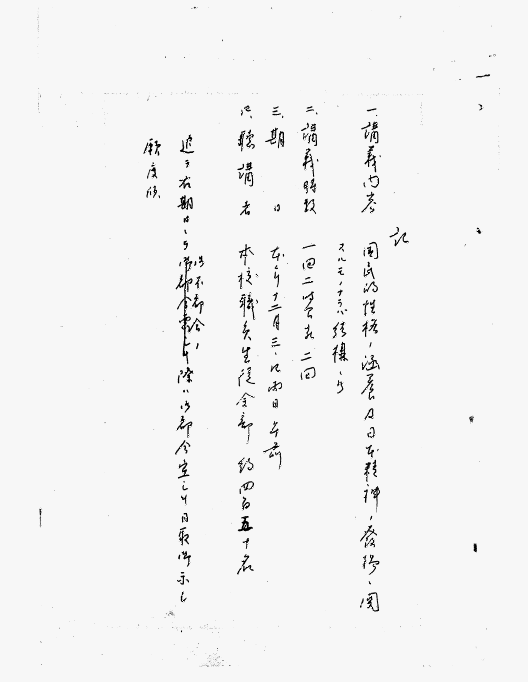 記
一、講義内容 国民的性格ノ涵養及日本精神ノ發揚ニ関
スルモノナラバ結構ニ候
二、講義時数 一回二時間 二回
三、期日 本年十二月三、四両日午前
四、聴講者 本校職員生徒全部 約四百五十名
追テ右期日ニ御不都合ノ際ハ御都合宜シキ日取御示シ
願度候